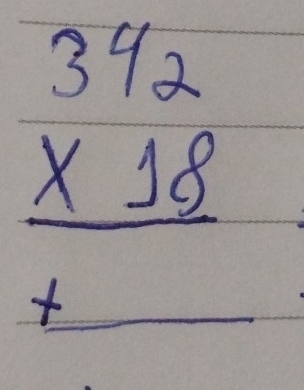 342
X 18
+